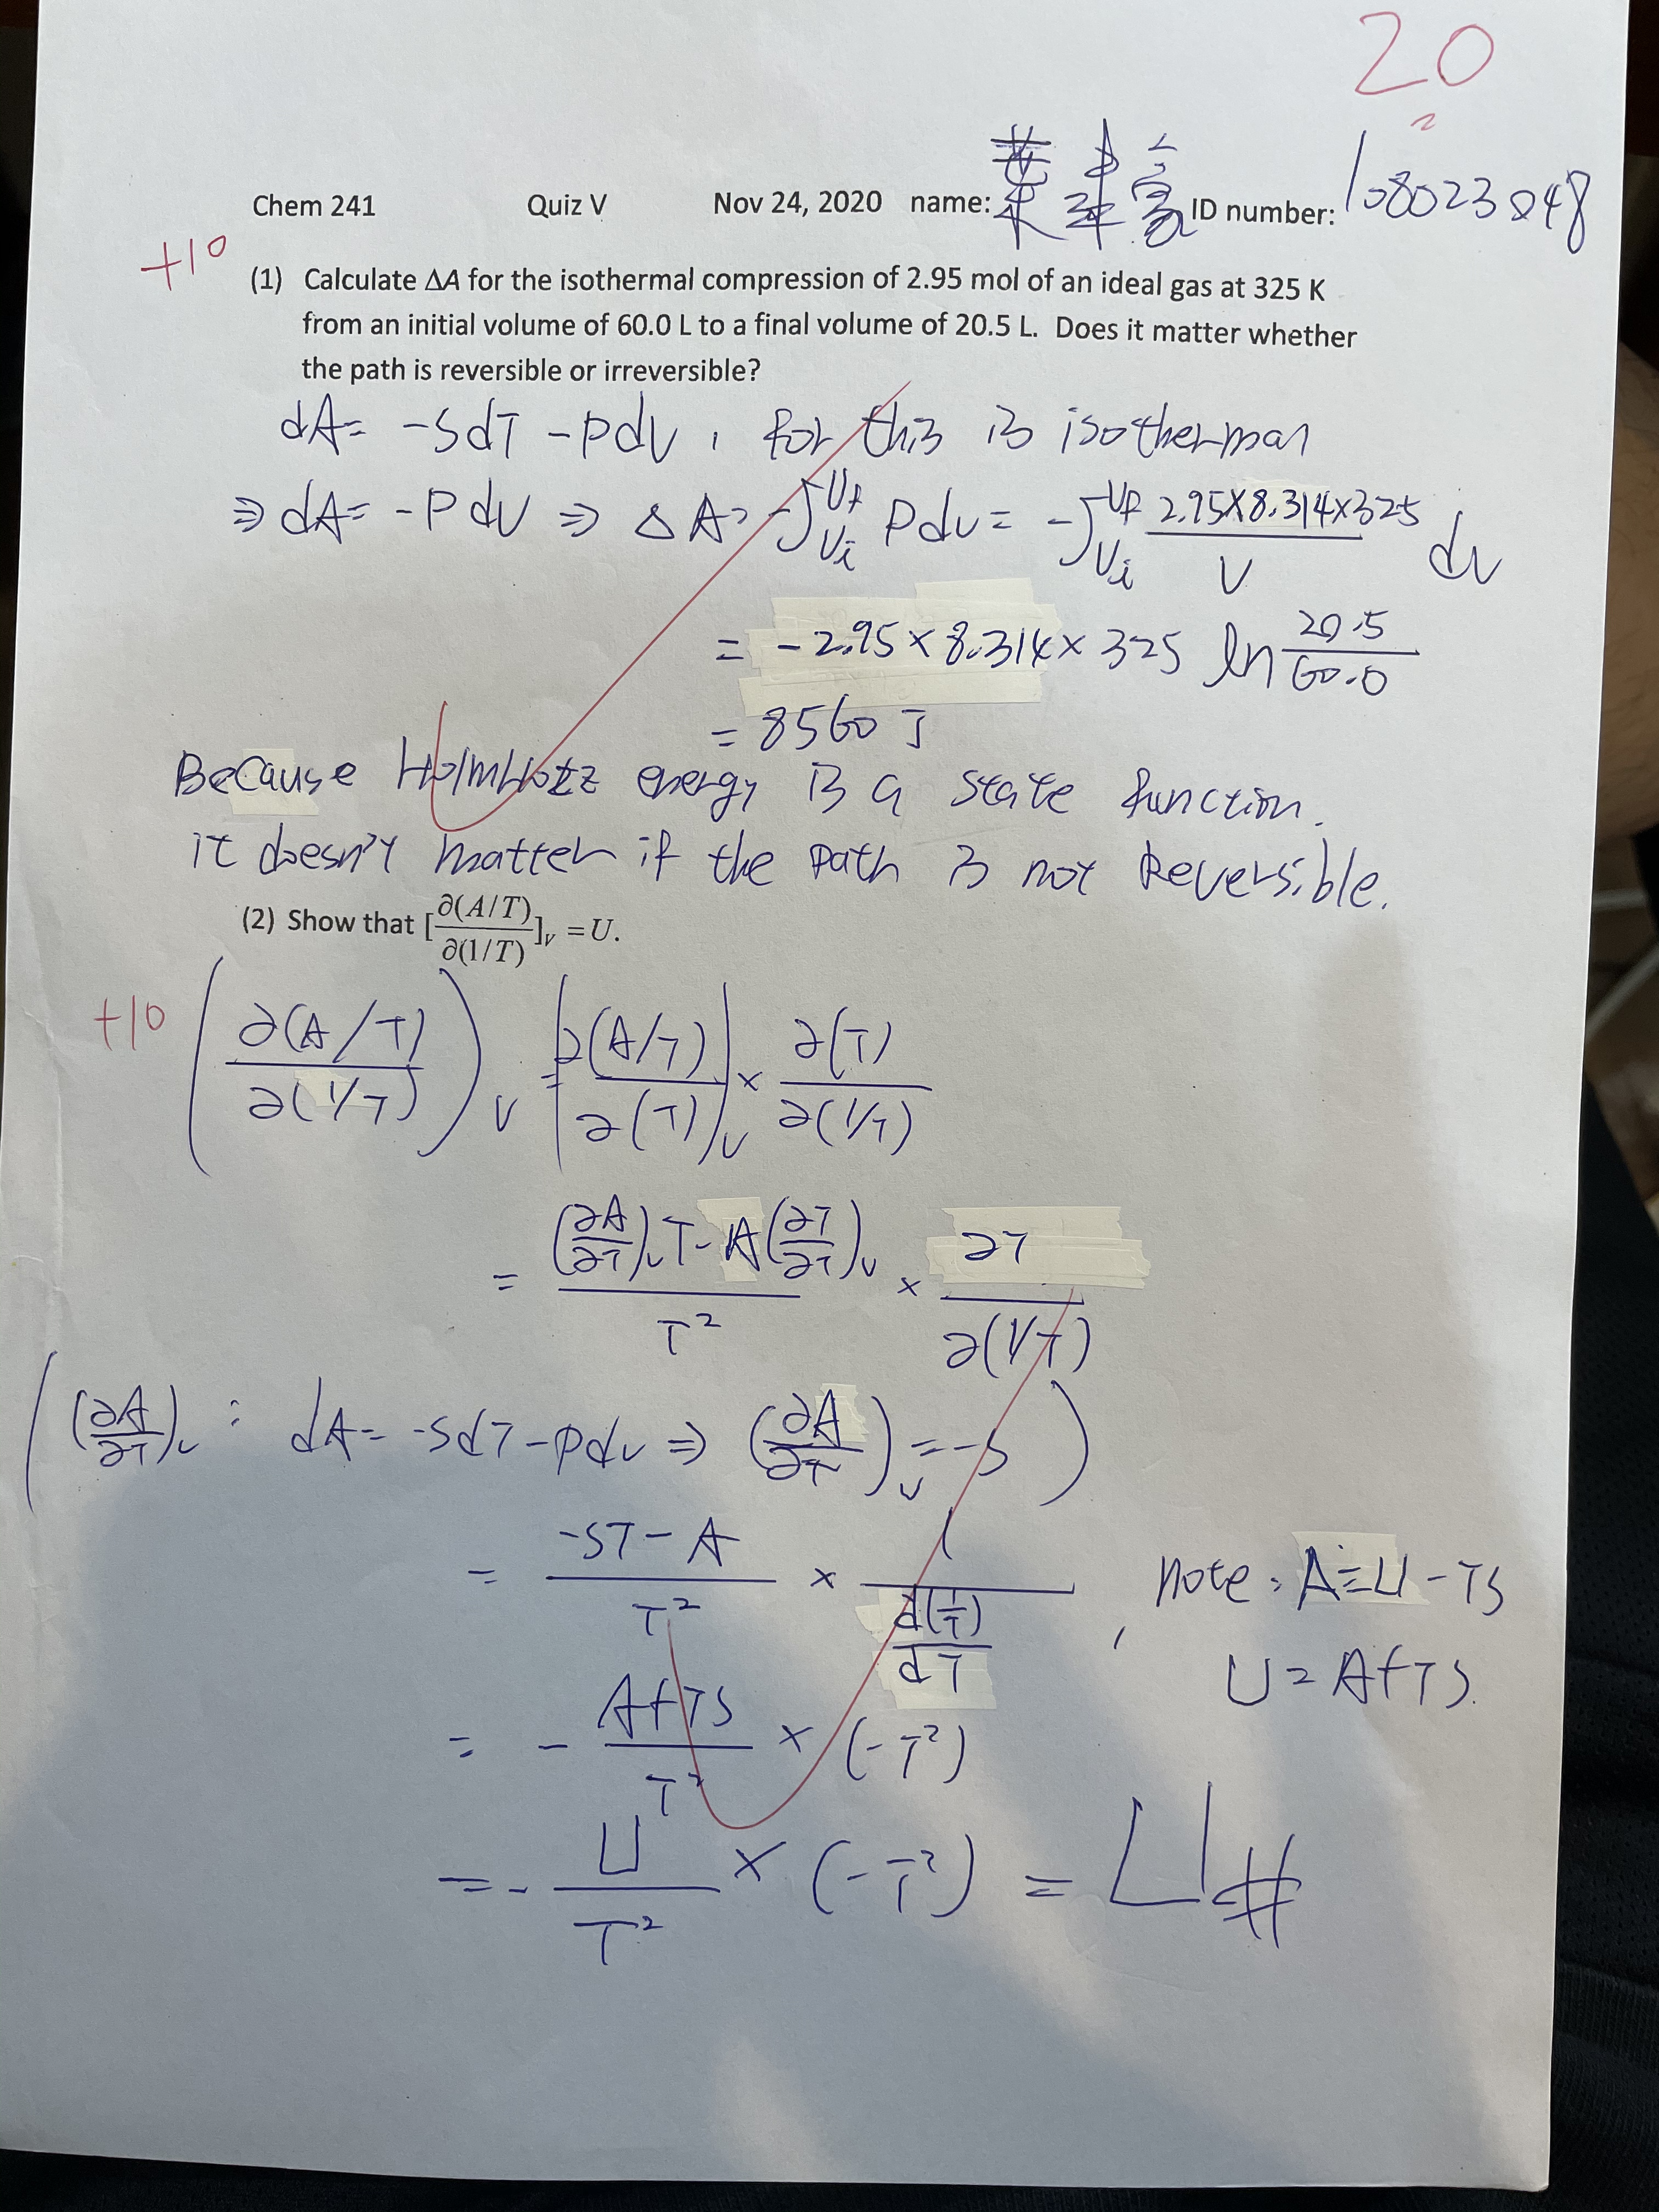 20
Chem 241 Quiz V Nov 24, 2020 name: 葉 ID number: 108023048
+10
(1) Calculate ΔA for the isothermal compression of 2.95 mol of an ideal gas at 325 K
from an initial volume of 60.0 L to a final volume of 20.5 L. Does it matter whether
the path is reversible or irreversible?
dA= -SdT -PdV, for this is isothermal
⇒ dA= -PdV ⇒ ΔA= -∫_{Vi}^{Vf} Pdv = -∫_{Vi}^{Vf} (2.95×8.314×325)/V dv
= -2.95×8.314×325 ln (20.5/60.0)
= 8560 J
Because HolmHotzz energy is a state function.
it doesn't matter if the path is not Reversible.
(2) Show that [∂(A/T)/∂(1/T)]_V = U.
+10 (∂(A/T)/∂(1/T))_V = (∂(A/T)/∂(T))_V × ∂(T)/∂(1/T)
= ((∂A/∂T)_V T - A(∂T/∂T)_V)/T² × ∂T/∂(1/T)
((∂A/∂T)_V : dA= -SdT-PdV ⇒ (∂A/∂T)_V = -S)
= (-ST-A)/T² × 1/(d(1/T)/dT) , note: A≡U-TS
U=A+TS.
= - (A+TS)/T² × (-T²)
= - U/T² × (-T²) = U #